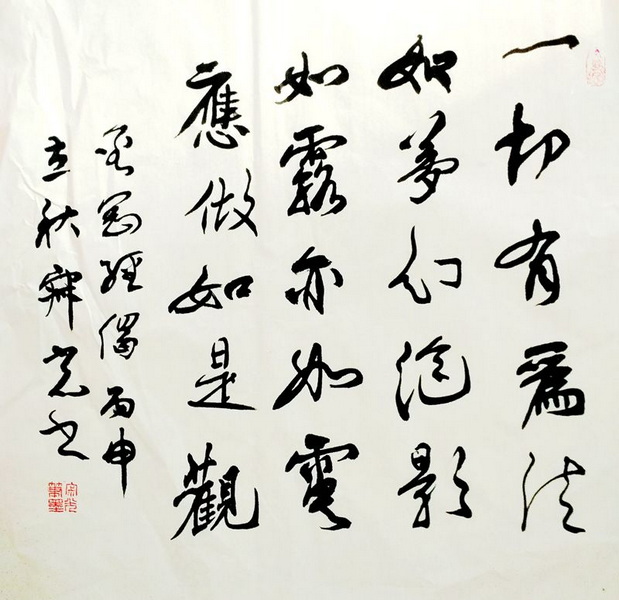 一切有為法
如夢幻泡影
如露亦如電
應做如是觀
金剛經偈丙申
立秋寂光書